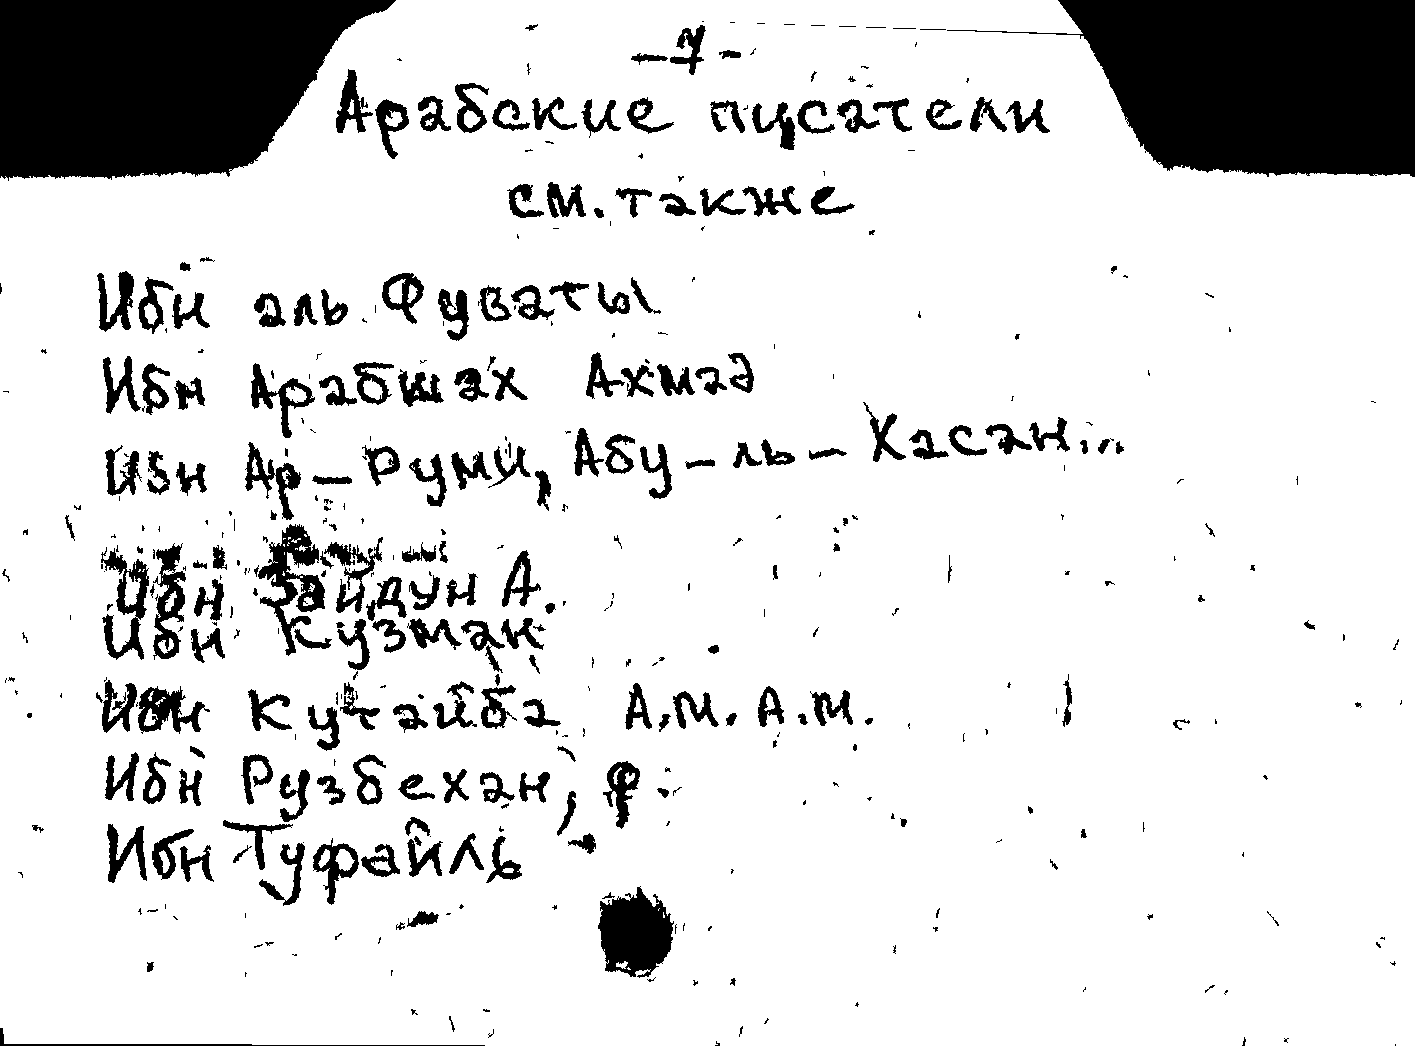 -7-
Арабские писатели
см. также
Ибн аль Фуваты
Ибн Арабшах Ахмад
Ибн Ар-Руми, Абу-ль-Хасан...
Ибн Зайдун А.
Ибн Кузман
Ибн Кутайба А.М.А.М.
Ибн Рузбехан, Ф.
Ибн Туфайль